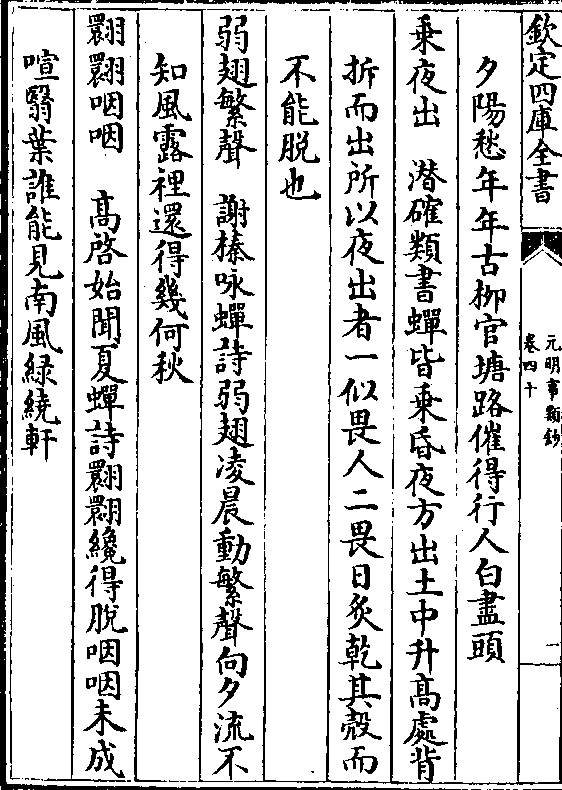 欽定四庫全書
元明事類鈔
卷四十
二
夕陽愁年年古柳官塘路催得行人白盡頭
乗夜出　潜確類書蟬皆乗昏夜方出土中升髙處背
拆而出所以夜出者一似畏人二畏日炙乾其殻而
不能脫也
弱翅繁聲　謝榛咏蟬詩弱翅凌晨動繁聲向夕流不
知風露裡還得幾何秋
翾翾咽咽　髙啓始聞夏蟬詩翾翾纔得脫咽咽未成
喧翳葉誰能見南風緑繞軒